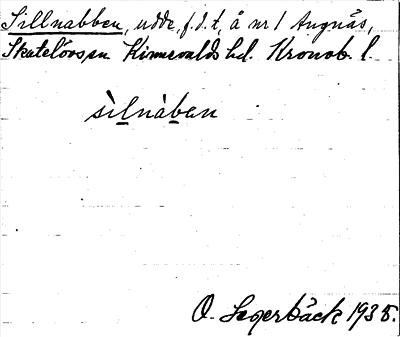 Sillnabben, udde, f.d.t, å nr 1 Angnäs,
Skatelövs sn Kinnevalds hd. Kronob. l.
sìlnàben
O. Segerbäck 1935.